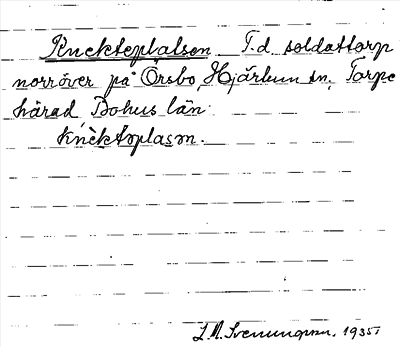 Knekteplatsen T.d. soldattorp
norröver på Örsbo, Hjärtum sn, Torpe
härad, Bohus län.
Knèktəplasn.
L.M. Svenungsson. 1935